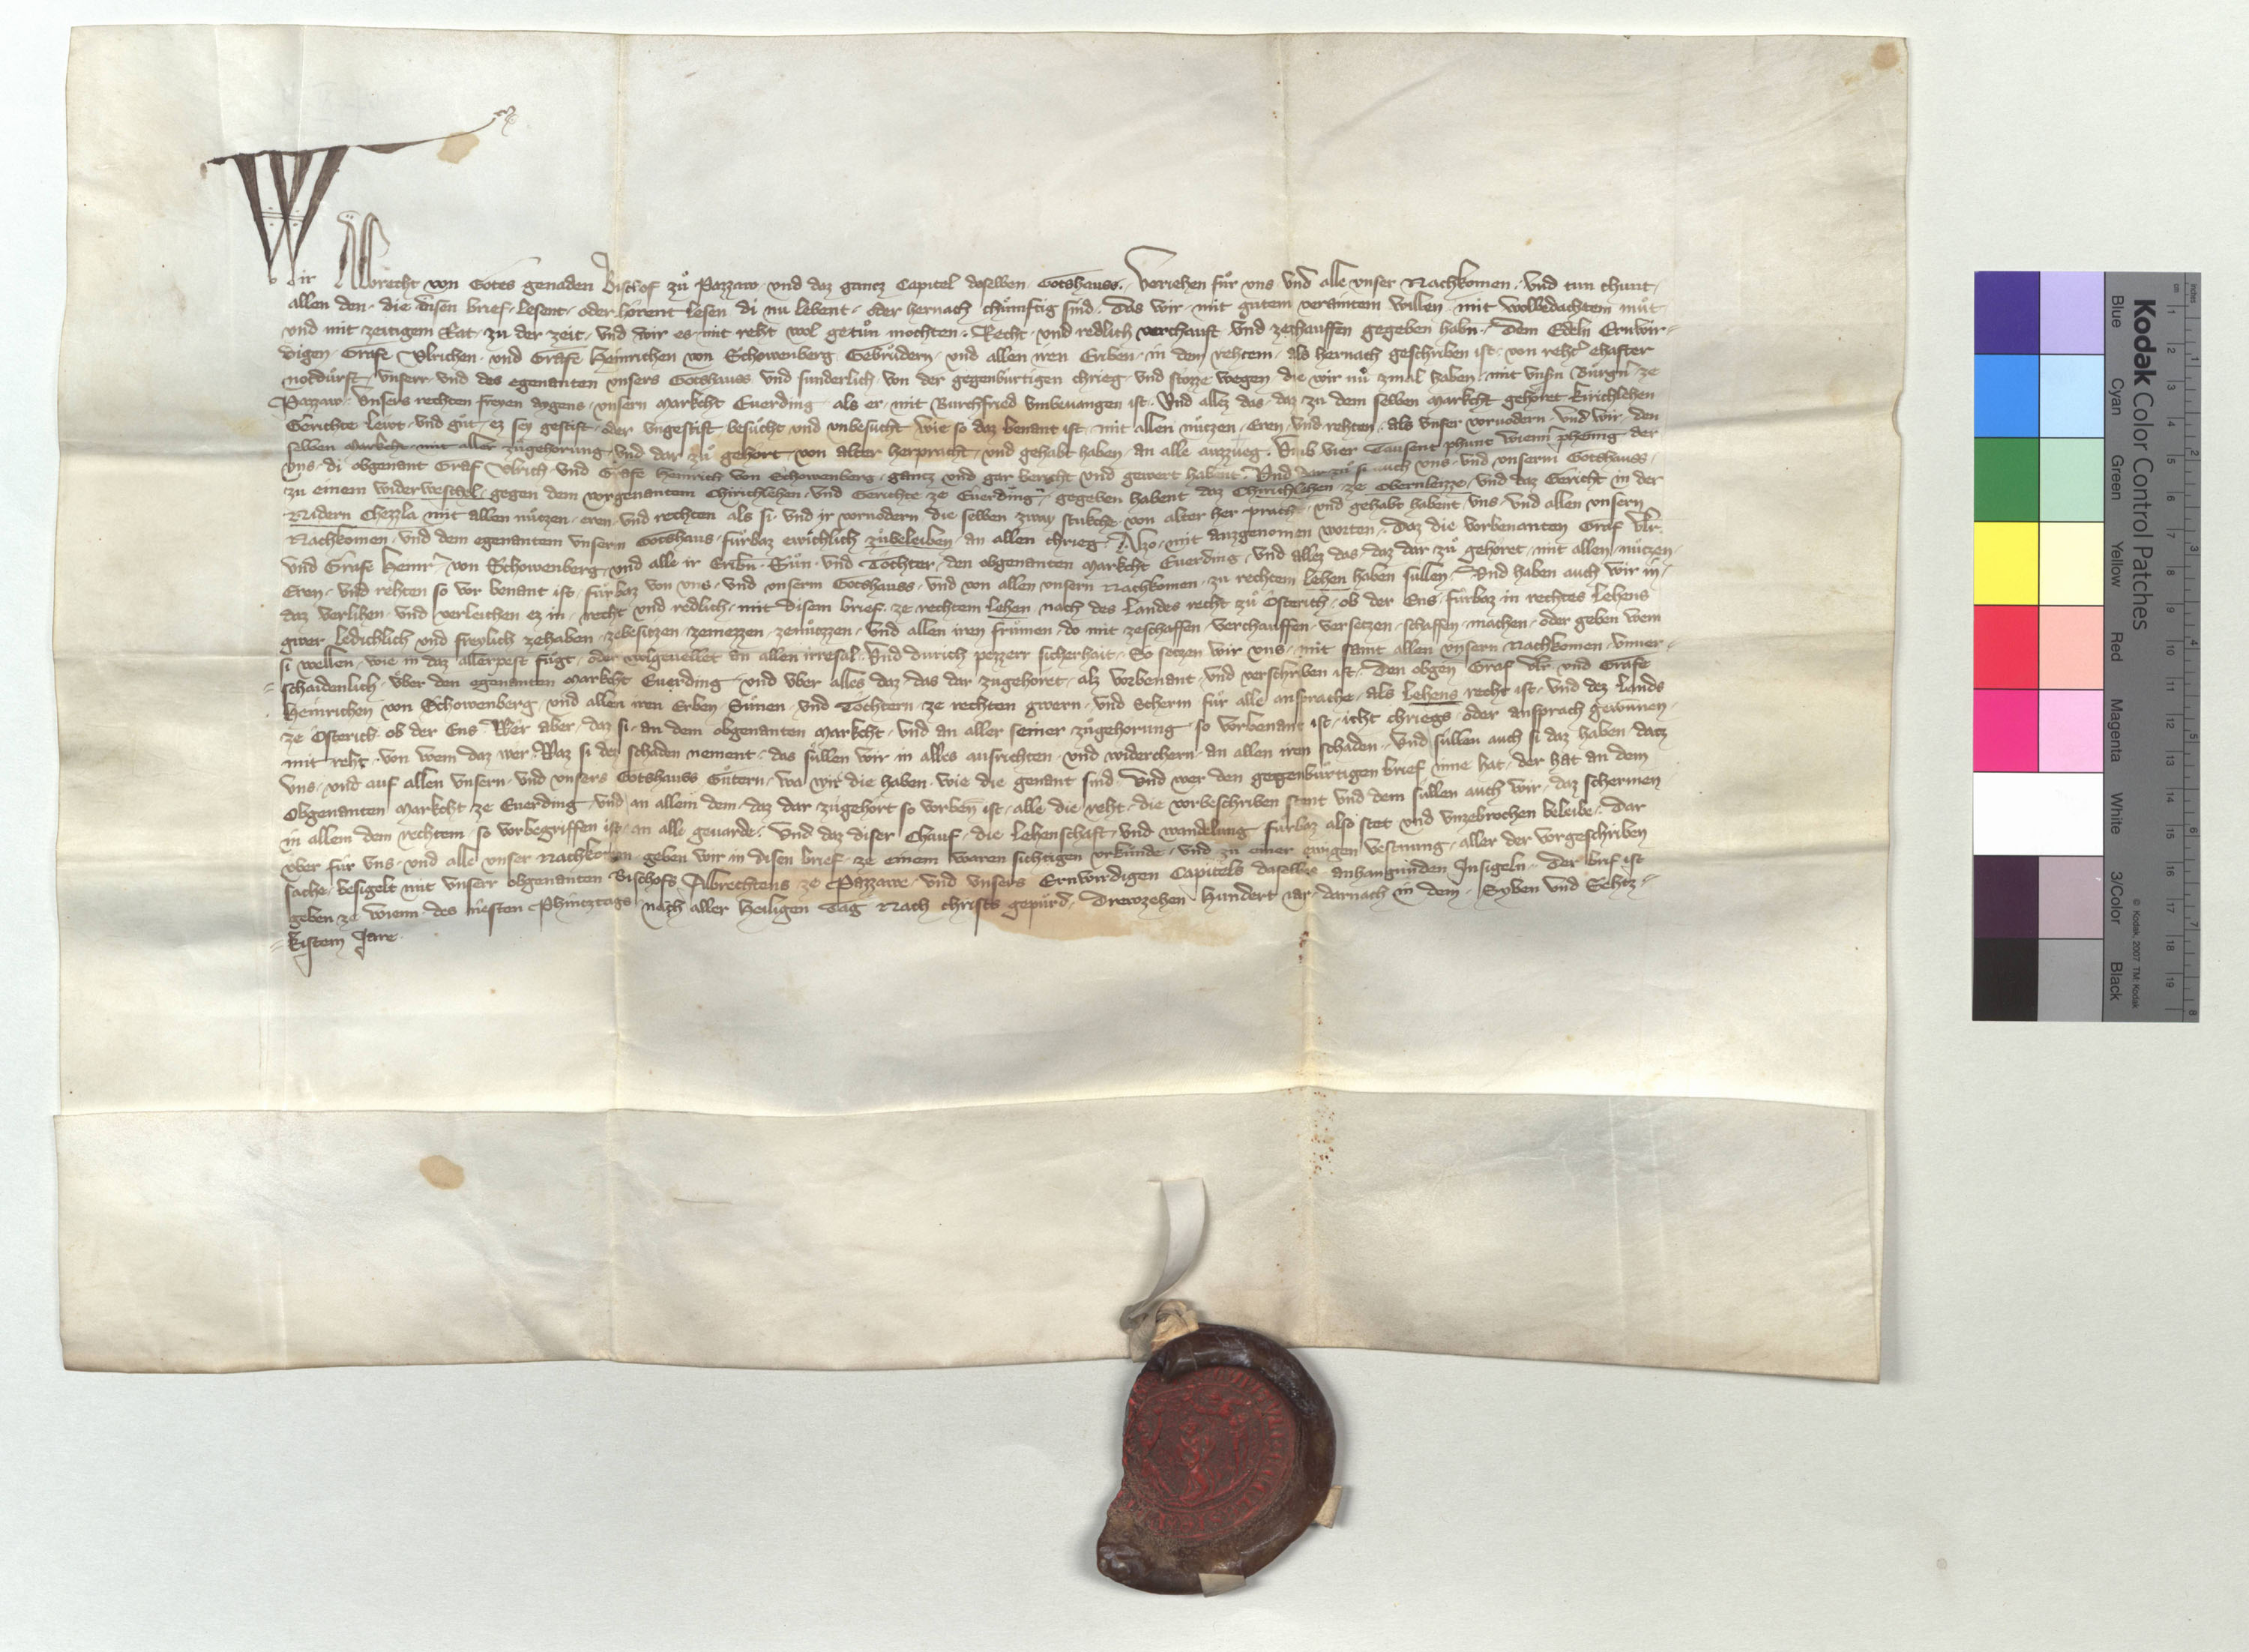 Wir Albrecht von Gotes genaden Bischof zů Pazzaw und daz gancz Capitel daselben Gotshauss. Veriehen fůr uns und alle unser Nachkomen. Und tun chunt
allen den die disen brief lesent oder hörent lesen di nu lebent oder hernach chůnftig sind. Das wir mit gůtem veraintem willen mit wolbedachtem můt
und mit zeitigem Rat zu der zeit und wir es mit reht wol getůn mochten. Recht und redlich verchauft und zechauffen gegeben habn. Dem Edeln Ernwir=
digen Grafe Ulrichen und Grafe Heinrichen von Schowenberg Gebrůdern und allen iren Erben in dem rehtem als hernach geschriben ist von reht ehafter
notdůrft unserr und des egenanten unsers Gotshauss und sunderlich von der gegenbůrtigen chrieg und stozze wegen die wir nů zmal haben mit unsn Burgn ze
Pazzaw Unsers rechten freyen aygens unsern Markcht Euerding als er mit Burchfried umbevangen ist. Und allez das daz zu dem selben Markcht gehöret Kirichlehen
Gerichte leiwt und gůt ez sey gestift oder ungestift besůcht und unbesůcht wie so daz benant ist mit allen nůtzen Eren und rehten als unser vorvodern und wir den
selben Markcht mit aller zůgehorung und dar zů gehört von alter herpracht und gehabt haben an alle auzzueg. Umb vier Tausent phunt wienn phenig der
uns di obgenant Graf Ulrich und Grafe Heinrich von Schowenberg gantz und gar bericht und gewert habent. Und dar zů si auch uns und unserm Gotshauss
zu einem widerwechsel gegen dem vorgenantem Chirichlehen und Gerichte ze Euerding gegeben habent daz Chirichlehen ze Obernleizze und daz Gericht in der
Nidern Chezzla mit allen nůtzen eren und rechten als si und ir vorvodern die selben zway stukche von alter her pracht und gehabt habent uns und allen unsern
Nachkomen und dem egenantem unserm Gotshaus fůrbaz ewichlich zůbeleiben an allen chrieg. Alzo mit auzgenomen worten. Daz die vorbenanten Graf Ulr
und Grafe Heinr von Schowenberg und alle ir Eribn Sůn und Töchter den obgenanten Markcht Euerding und allez das daz dar zů gehöret mit allen nůtzen
Eren und rehten so vor benant ist fůrbaz von uns und unserm Gotshauss und von allen unsern Nachkomen zu rechtem lehen haben sullen. Und haben auch wir in
daz verlihen und verleichen ez in recht und redlich mit disem brief ze rechtem lehen nach des Landes recht zů Österich ob der Ens fůrbaz in rechtes lehens
gwer ledichlich und freylich zehaben zebesitzen zeniezzen zenůtzen und allen iren frůmen do mit zeschaffen verchauffen versetzen schaffen machen oder geben wem
si wellen wie in daz allerpest fůgt oder wolgevellet an allen irresal. Und durich pezzerr sicherhait. So setzen wir uns mit samt allen unsern Nachkomen unver=
=schaidenlich ůber den egenanten Markcht Euerding und uber alles daz das dar zugehöret alz vorbenant und verschriben ist. Den obgen Graf Ulr und Grafe
Heinrichen von Schowenberg und allen iren Erben Sůnen und Töchtern ze rechten gwern und Scherm fůr alle ansprache als Lehens recht ist und dez Lands
ze Österich ob der Ens. Wer aber daz si an dem obgenanten Markcht und an aller seiner zůgehorung so vorbenant ist icht chriegs oder ansprach gewunnen
mit reht von wem daz wer. Waz si dez schaden nement das sullen wir in alles ausrichten und widerchern an allen iren schaden. Und sullen auch si daz haben datz
uns und auf allen unsern und unsers Gotshauss Gůtern wa wir die haben wie die genant sind. Und wer den gegenbůrtigen brief inne hat der hat an dem
Obgenanten Markcht ze Euerding und an allem dem daz dar zůgehort so vorben ist alle die reht die vorbeschriben stent und dem sullen auch wir daz schermen
in allem dem rechtem so vorbegriffen ist an alle gevarde. Und daz diser Chauf die Lehenschaft und wandelung fůrbaz also stet und unzebrochen beleibe. Dar
uber fůr uns und alle unser Nachkomen geben wir in disen brief ze einem waren sichtigen urkůnde und zu einer ewigen vestnung aller der vorgeschriben
sache besigelt mit unserr obgenanten Bischofs Albrechtens ze Pazzawe und unsers Ernwirdigen Capitels daselbs anhangunden Insigeln. Der brif ist
geben ze Wienn des nesten Phincztags nach aller Heiligen Tag Nach christs gepůrd Drewzehen Hundert iar darnach in dem Syben und Sehtz=
=kistem Jare
Kodak Color Control Patches
Blue Cyan Green Yellow Red Magenta White 3/Color Black
© Kodak, 2007 TM: Kodak